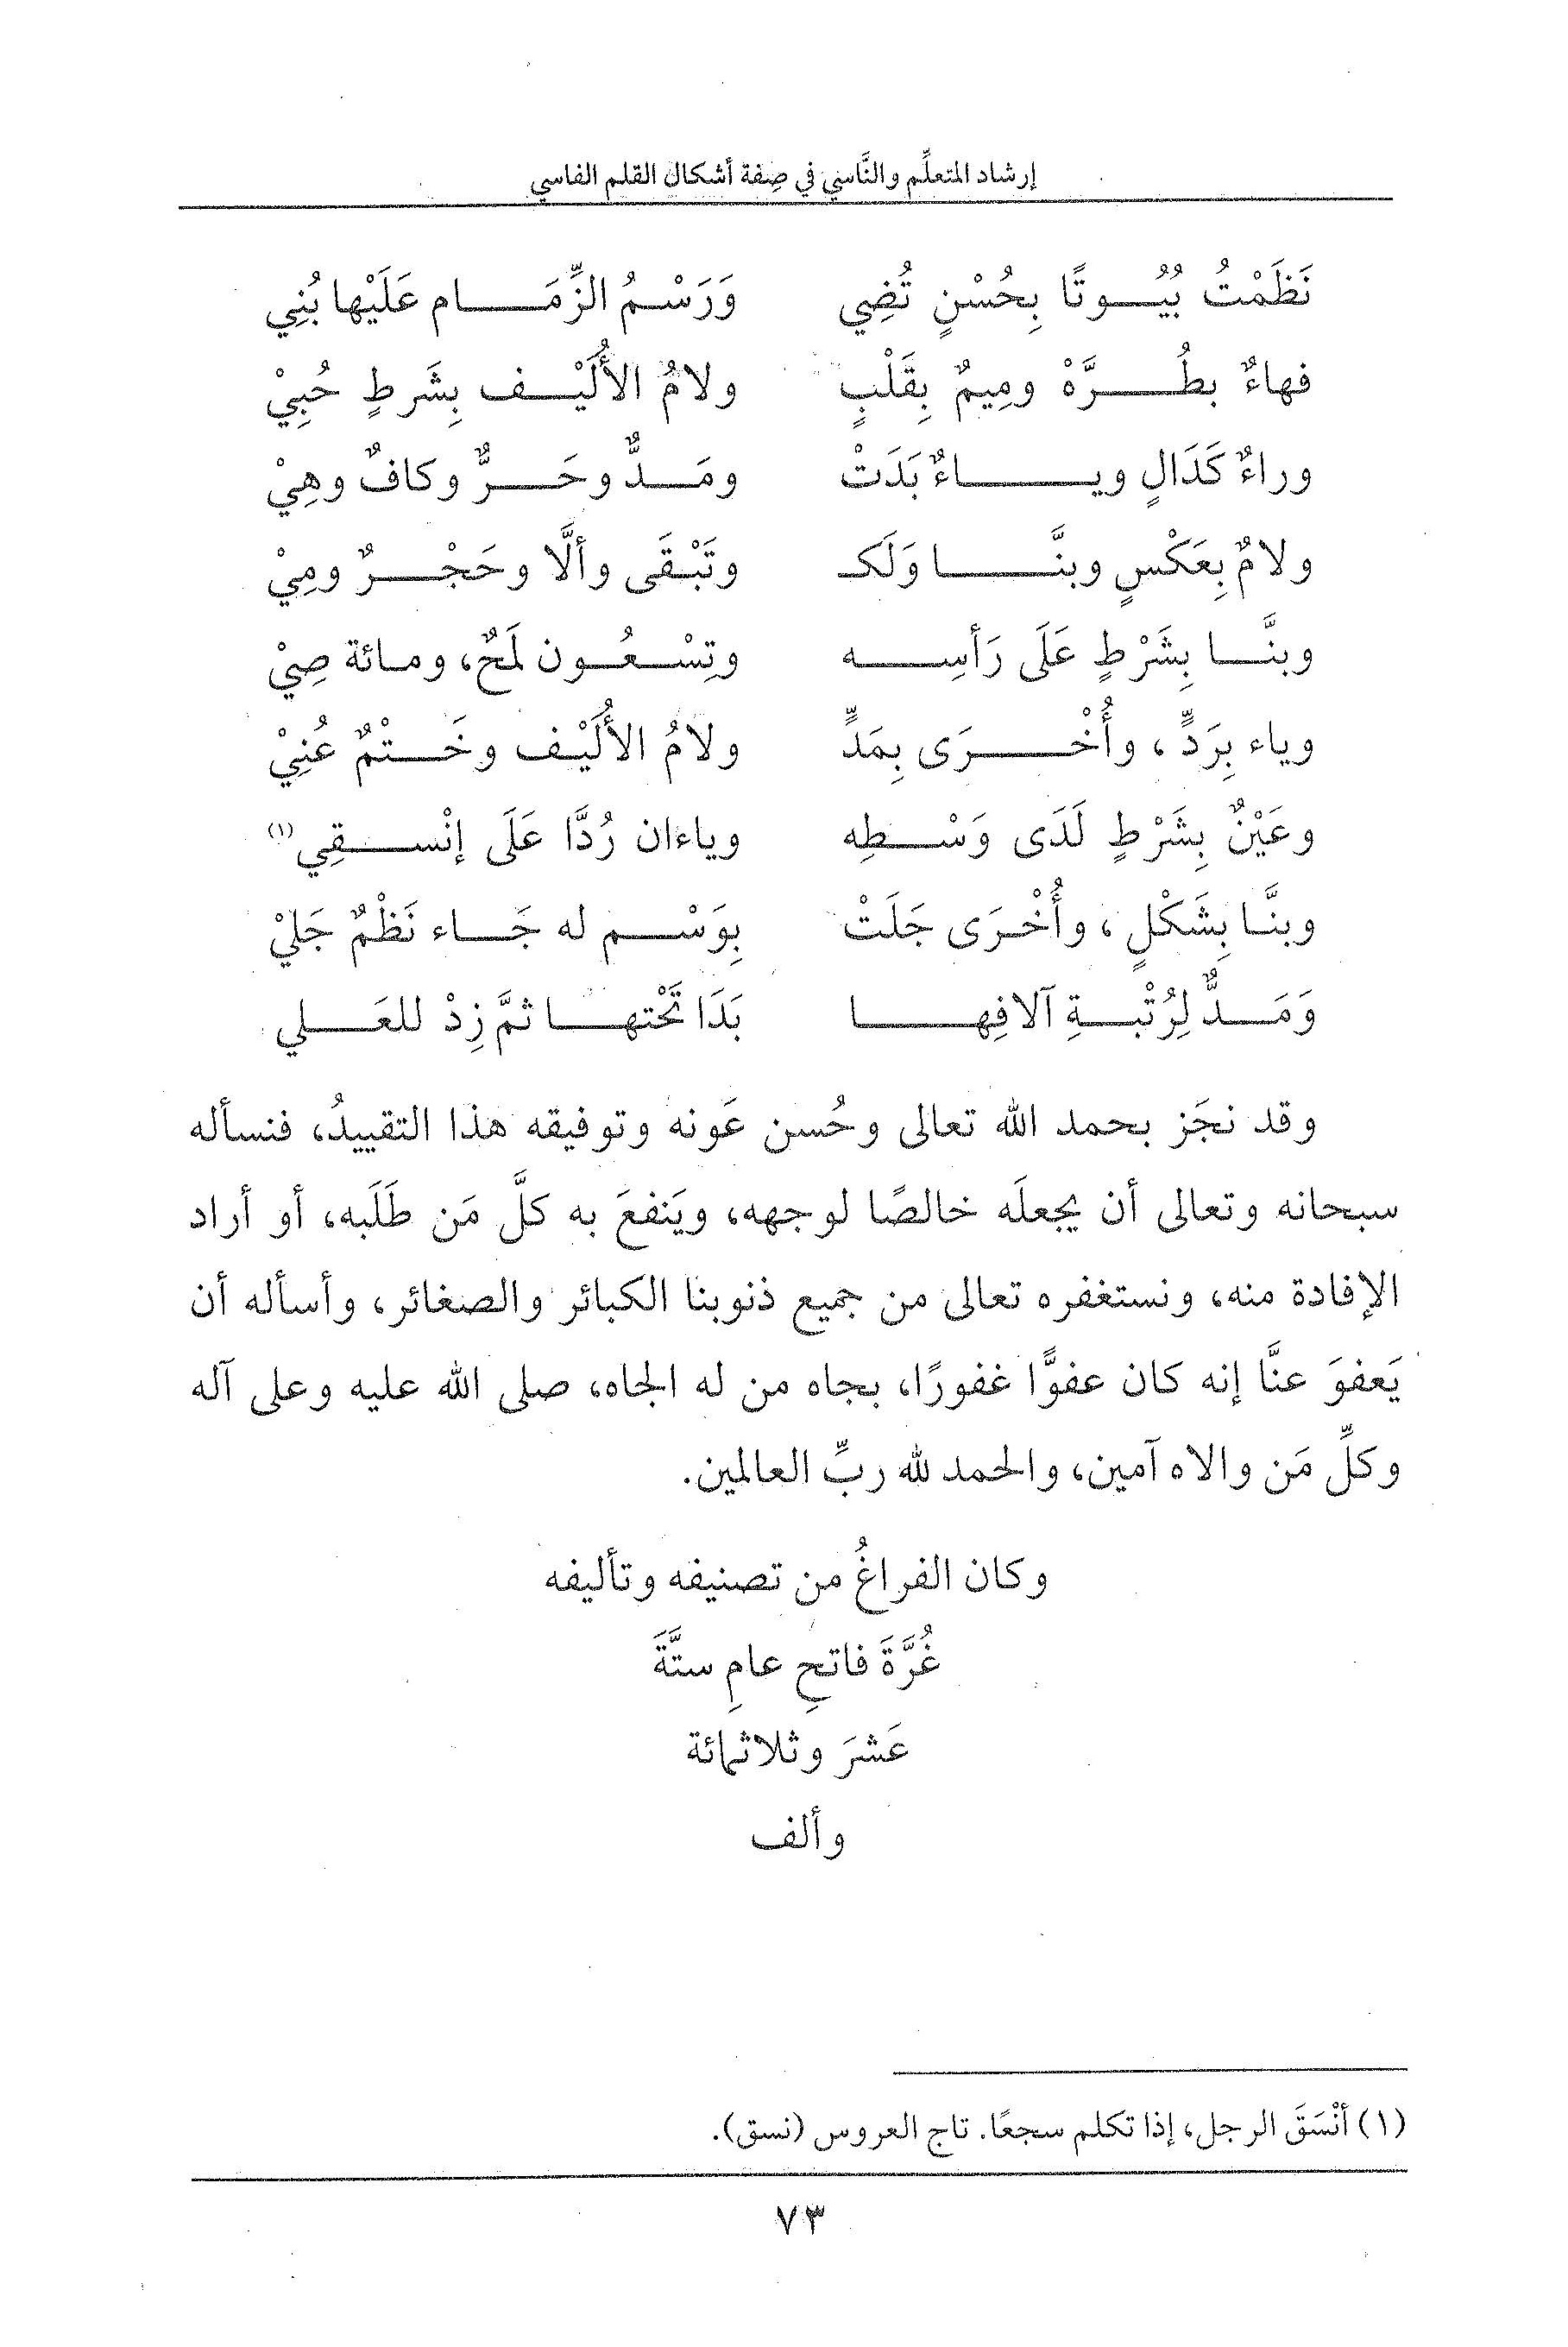 إرشاد المتعلِّم والنَّاسي في صِفة أشكال القلم الفاسي
نَظَمْتُ بُيُوتًا بِحُسْنٍ تُضِي وَرَسْمُ الزِّمَام عَلَيْها بُنِي
فهاءٌ بطُرَّهْ ومِيمٌ بِقَلْبٍ ولامُ الأُلَيْف بِشَرطٍ حُبِيْ
وراءٌ كَدَالٍ وياءٌ بَدَتْ ومَدٌّ وحَرٌّ وكافٌ وهِيْ
ولامٌ بِعَكْسٍ وبنَّا وَلَكـ وتَبْقَى وألَّا وحَجْرٌ ومِيْ
وبنَّا بِشَرْطٍ عَلَى رَأسِه وتِسْعُون لَمَحٌ، ومائة صِيْ
وياء بِرَدٍّ، وأُخْرَى بِمَدٍّ ولامُ الأُلَيْف وخَتْمٌ عُنِيْ
وعَيْنٌ بِشَرْطٍ لَدَى وَسْطِه وياءان رُدَّا عَلَى إنْسقِي (١)
وبنَّا بِشَكْلٍ، وأُخْرَى جَلَتْ بِوَسْم له جَاء نَظْمٌ جَليْ
وَمَدٌّ لِرُتْبةِ آلافِها بَدَا تَحْتها ثمَّ زِدْ للعَلي
وقد نجَز بحمد الله تعالى وحُسن عَونه وتوفيقه هذا التقييدُ، فنسأله
سبحانه وتعالى أن يجعلَه خالصًا لوجهه، ويَنفعَ به كلَّ مَن طَلَبه، أو أراد
الإفادة منه، ونستغفره تعالى من جميع ذنوبنا الكبائر والصغائر، وأسأله أن
يَعفوَ عنَّا إنه كان عفوًّا غفورًا، بجاه من له الجاه، صلى الله عليه وعلى آله
وكلِّ مَن والاه آمين، والحمد لله ربِّ العالمين.
وكان الفراغُ من تصنيفه وتأليفه
غُرَّةَ فاتحِ عامِ ستَّةَ
عَشرَ وثلاثمائة
وألف
(١) أنْسَقَ الرجل، إذا تكلم سجعًا. تاج العروس (نسق).
٧٣